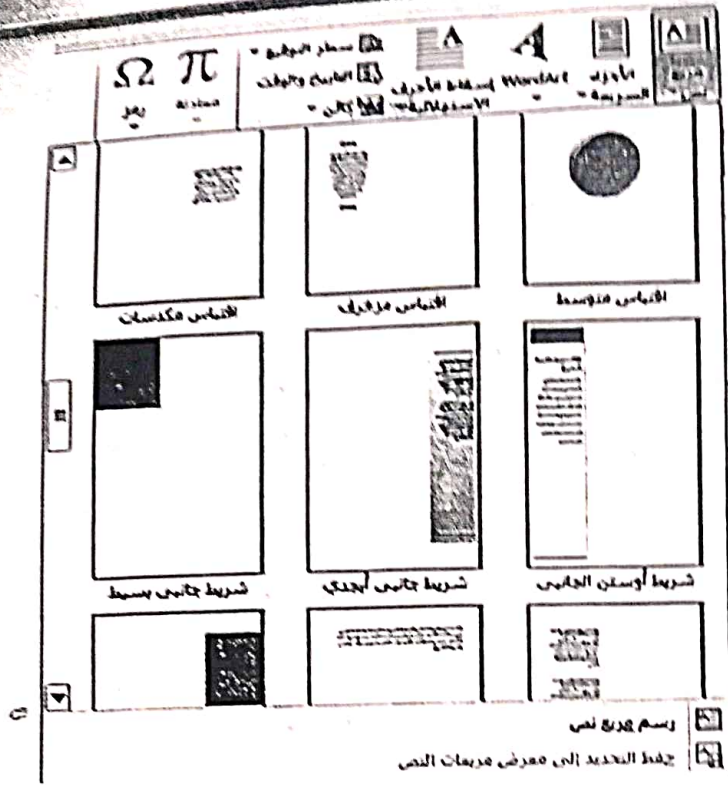 مربع نص
الأجزاء السريعة
WordArt
إسقاط الأحرف الاستهلالية
سطر التوقيع
التاريخ والوقت
كائن
π معادلة
Ω رمز
الاقتباس متوسط
الاقتباس مزخرف
الاقتباس مكدسات
شريط أوستن الجانبي
شريط جانبي أبجدي
شريط جانبي بسيط
رسم مربع نص
حفظ التحديد إلى معرض مربعات النص